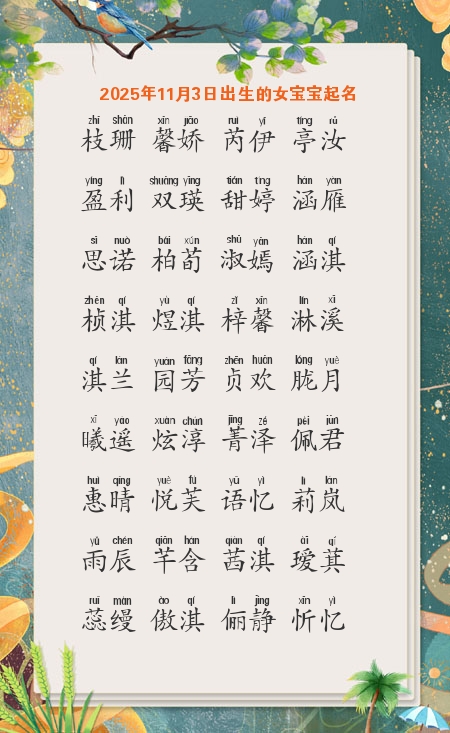 2025年11月3日出生的女宝宝起名
zhī shān xīn jiāo ruì yī tíng rǔ
枝珊 馨娇 芮伊 亭汝
yíng lì shuāng yīng tián tíng hán yàn
盈利 双瑛 甜婷 涵雁
sī nuò bǎi xún shū yān hán qí
思诺 柏荀 淑嫣 涵淇
zhēn qí yù qí zǐ xīn lín xī
桢淇 煜淇 梓馨 淋溪
qí lán yuán fāng zhēn huān lóng yuè
淇兰 园芳 贞欢 胧月
xī yáo xuàn chún jīng zé pèi jūn
曦遥 炫淳 菁泽 佩君
huì qíng yuè fú yǔ yì lì lán
惠晴 悦芙 语忆 莉岚
yǔ chén qiān hán qiàn qí ài qí
雨辰 芊含 茜淇 瑷萁
ruǐ màn ào qí lì jìng xīn yì
蕊缦 傲淇 俪静 忻忆